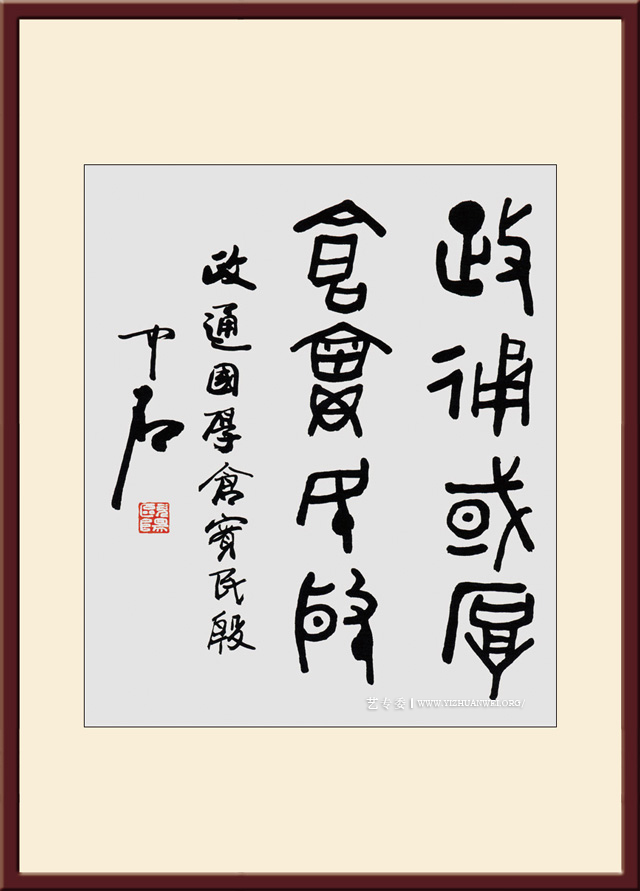 政通國厚
倉實民殷
政通國厚倉實民殷
中石
艺专委 | WWW.YIZHUANWEI.ORG/